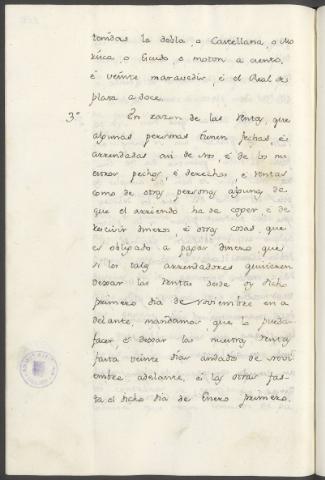 tenidas la dobla, o Castellana, o Mo
risca, o Escudo, o moton a ciento,
é veinte maravedis, é el Real de
plata a doce.
3º En razon de las rentas, que
algunas personas tienen fechas, é
arrendadas asi de nos, é de los nu
estros pechos, é derechos, é rentas
como de otras personas algunas de
que el arriendo ha de coger, é de
recivir dineros, é otras cosas, que
es obligado a pagar dinero que
si los tales arrendadores quisieren
dexar las rentas desde oy dicho
primero dia de noviembre en a
delante, mandamos, que lo puedan
facer é dexar las nuestras rentas
fasta veinte dias andados de novi
embre adelante, é las otras fas-
ta el dicho dia de Enero primero.